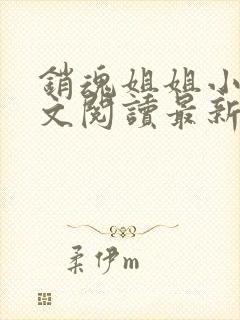 銷魂姐姐小
文閱讀最新
柔伊m